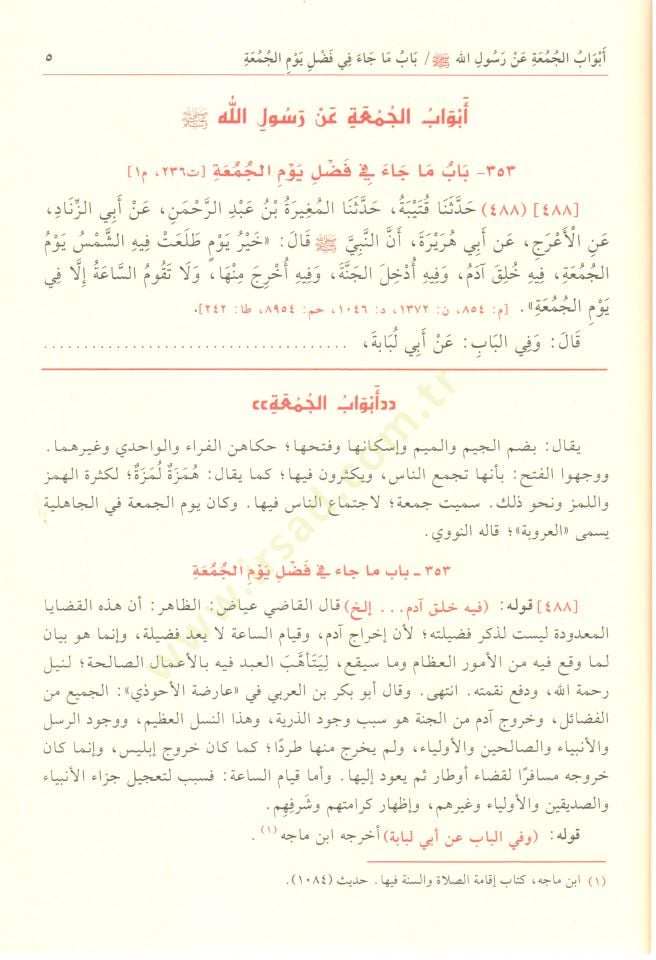 أَبْوَابُ الجُمُعَةِ عَنْ رَسُولِ الله ﷺ / بَابُ مَا جَاءَ فِي فَضْلِ يَوْمِ الجُمُعَةِ ٥
أَبْوَابُ الجُمُعَةِ عَنْ رَسُولِ اللهِ ﷺ
٣٥٣- بَابُ مَا جَاءَ فِي فَضْلِ يَوْمِ الجُمُعَةِ [ت٢٣٦، م١]
[٤٨٨] (٤٨٨) حَدَّثَنَا قُتَيْبَةُ، حَدَّثَنَا المُغِيرَةُ بْنُ عَبْدِ الرَّحْمَنِ، عَنْ أَبِي الزِّنَادِ،
عَنِ الْأَعْرَجِ، عَن أَبِي هُرَيْرَةَ، أَنَّ النَّبِيَّ ﷺ قَالَ: «خَيْرُ يَوْمٍ طَلَعَتْ فِيهِ الشَّمْسُ يَوْمُ
الجُمُعَةِ، فِيهِ خُلِقَ آدَمُ، وَفِيهِ أُدْخِلَ الجَنَّةَ، وَفِيهِ أُخْرِجَ مِنْهَا، وَلَا تَقُومُ السَّاعَةُ إِلَّا فِي
يَوْمِ الجُمُعَةِ». [م: ٨٥٤، ن: ١٣٧٢، د: ١٠٤٦، حم: ٨٩٥٤، طا: ٢٤٢].
قَالَ: وَفِي البَابِ: عَنْ أَبِي لُبَابةَ، ....................................
«أَبْوَابُ الجُمُعَةِ»
يقال: بضم الجيم والميم وإسكانها وفتحها؛ حكاهن الفراء والواحدي وغيرهما.
ووجهوا الفتح: بأنها تجمع الناس، ويكثرون فيها؛ كما يقال: هُمَزَةٌ لُمَزَةٌ؛ لكثرة الهمز
واللمز ونحو ذلك. سميت جمعة؛ لاجتماع الناس فيها. وكان يوم الجمعة في الجاهلية
يسمى «العروبة»؛ قاله النووي.
٣٥٣ ـ باب ما جاء في فَضْلِ يَوْمِ الجُمُعَةِ
[٤٨٨] قوله: (فيه خلق آدم... إلخ) قال القاضي عياض: الظاهر: أن هذه القضايا
المعدودة ليست لذكر فضيلته؛ لأن إخراج آدم، وقيام الساعة لا يعد فضيلة، وإنما هو بيان
لما وقع فيه من الأمور العظام وما سيقع، لِيَتَأهَّبَ العبد فيه بالأعمال الصالحة؛ لنيل
رحمة الله، ودفع نقمته. انتهى. وقال أبو بكر بن العربي في «عارضة الأحوذي»: الجميع من
الفضائل، وخروج آدم من الجنة هو سبب وجود الذرية، وهذا النسل العظيم، ووجود الرسل
والأنبياء والصالحين والأولياء، ولم يخرج منها طردًا؛ كما كان خروج إبليس، وإنما كان
خروجه مسافرًا لقضاء أوطار ثم يعود إليها. وأما قيام الساعة: فسبب لتعجيل جزاء الأنبياء
والصديقين والأولياء وغيرهم، وإظهار كرامتهم وشَرفِهِم.
قوله: (وفي الباب عن أبي لبابة) أخرجه ابن ماجه (١).
(١) ابن ماجه، كتاب إقامة الصلاة والسنة فيها. حديث (١٠٨٤).